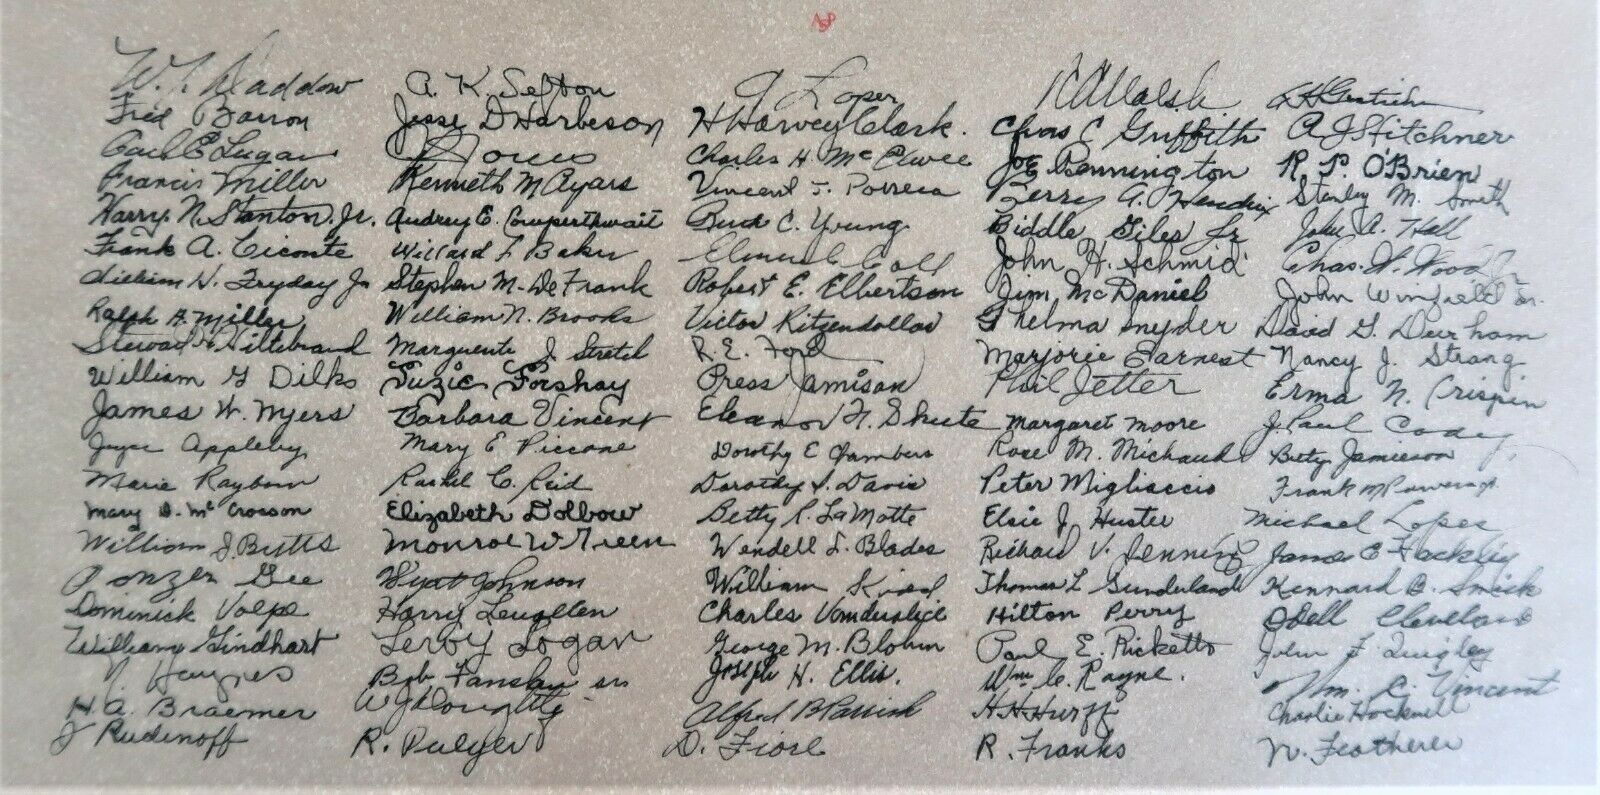 ASP
W. L. Haddow
Fred Barron
Carl E Lugar
Francis Miller
Harry N. Stanton, Jr.
Frank A. Ciconte
William H. Fryday Jr
Ralph A. Miller
Steward H Hiltebrand
William G Dilks
James W. Myers
Joyce Appleby
Marie Raybourn
Mary D. McCrosson
William J. Butts
Ponzer Gee
Dominick Volpe
William Gindhart
Haynes
H. A. Braemer
J Rudinoff
A. K. Sefton
Jesse D Harbeson
Kenneth M Ayars
Audrey E. Cowperthwait
Willard F Baker
Stephen M. DeFrank
William N. Brooks
Marguerite J. Stretch
Suzie Forshay
Barbara Vincent
Mary E Piccone
Rachel C. Reid
Elizabeth Dolbow
Monroe W Green
Wyatt Johnson
Harry Leughlen
Leroy Logan
Bob Fanslau sr
W J Doughty
R. Pulyer
J Loper
H Harvey Clark.
Charles H. McElwee
Vincent J. Porreca
Bud C. Young
Robert E. Elbertson
Victor Kitzendollar
R. E. Ford
Press Jamison
Eleanor H. Shute
Dorothy E Chambers
Dorothy S. Davis
Betty R. LaMotte
Wendell L. Blades
William Kidd
Charles Vanduslice
George M. Blohm
Joseph H. Ellis.
Alfred B Parrish
D. Fiore
R A Walsh
Chas C Griffith
Joe Pennington
Perry A. Hendrix
Biddle Giles Jr
John H. Schmid
Jim McDaniel
Thelma Snyder
Marjorie Earnest
Phil Jetter
Margaret Moore
Rose M. Michaud
Peter Migliaccio
Elsie J. Huster
Richard V. Jennings
Thomas L Sunderland
Hilton Perry
Paul E. Ricketts
Wm. C. Rayne.
H H Hurff
R. Franks
A J Hitchner
R. P. O'Brien
Stanley M. Smith
John A. Hall
Chas. W. Wood Jr
John Winfield Sr.
David G. Durham
Nancy J. Strang
Erma N. Crispin
J. Paul Cody
Betty Jamieson
Frank M
Michael Lopes
James E Hackley
Kennard B. Smick
Odell Cleveland
John F Quigley
Wm. R. Vincent
Charlie Hocknell
N. Featherer